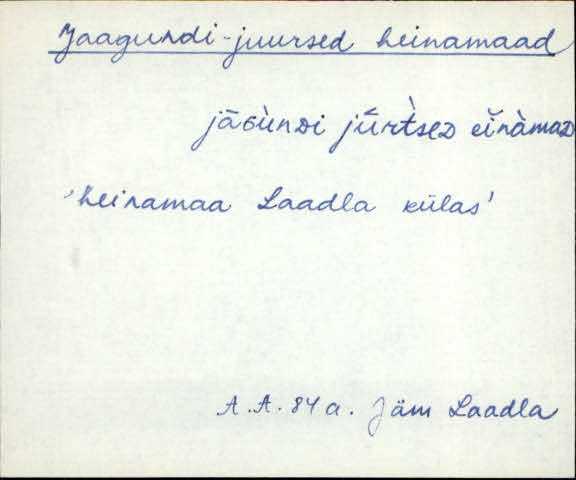 Jaagundi-juursed heinamaad
jāɢùnᴅi jū́rt̀seᴅ eǐnàmaᴅ
'heinamaa Laadla külas'
A.A. 84 a. Jäm Laadla